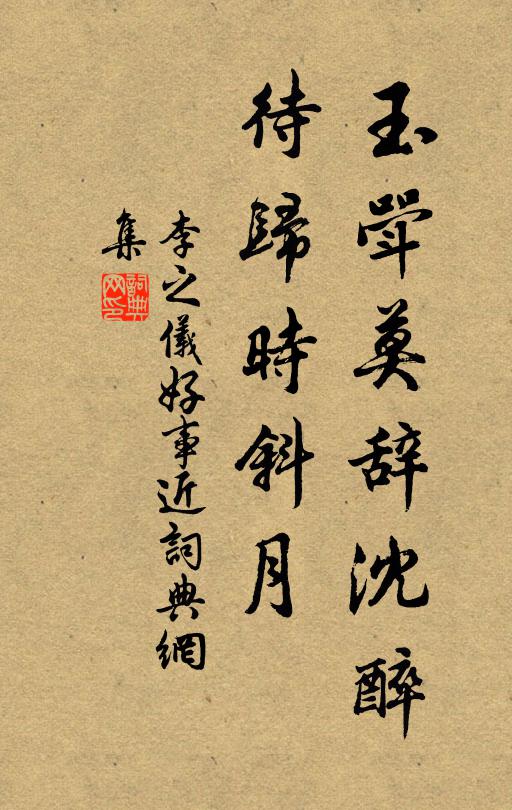 玉斝莫辞沈醉
待歸時斜月
李之儀好事近詞典網
集
詞典网印